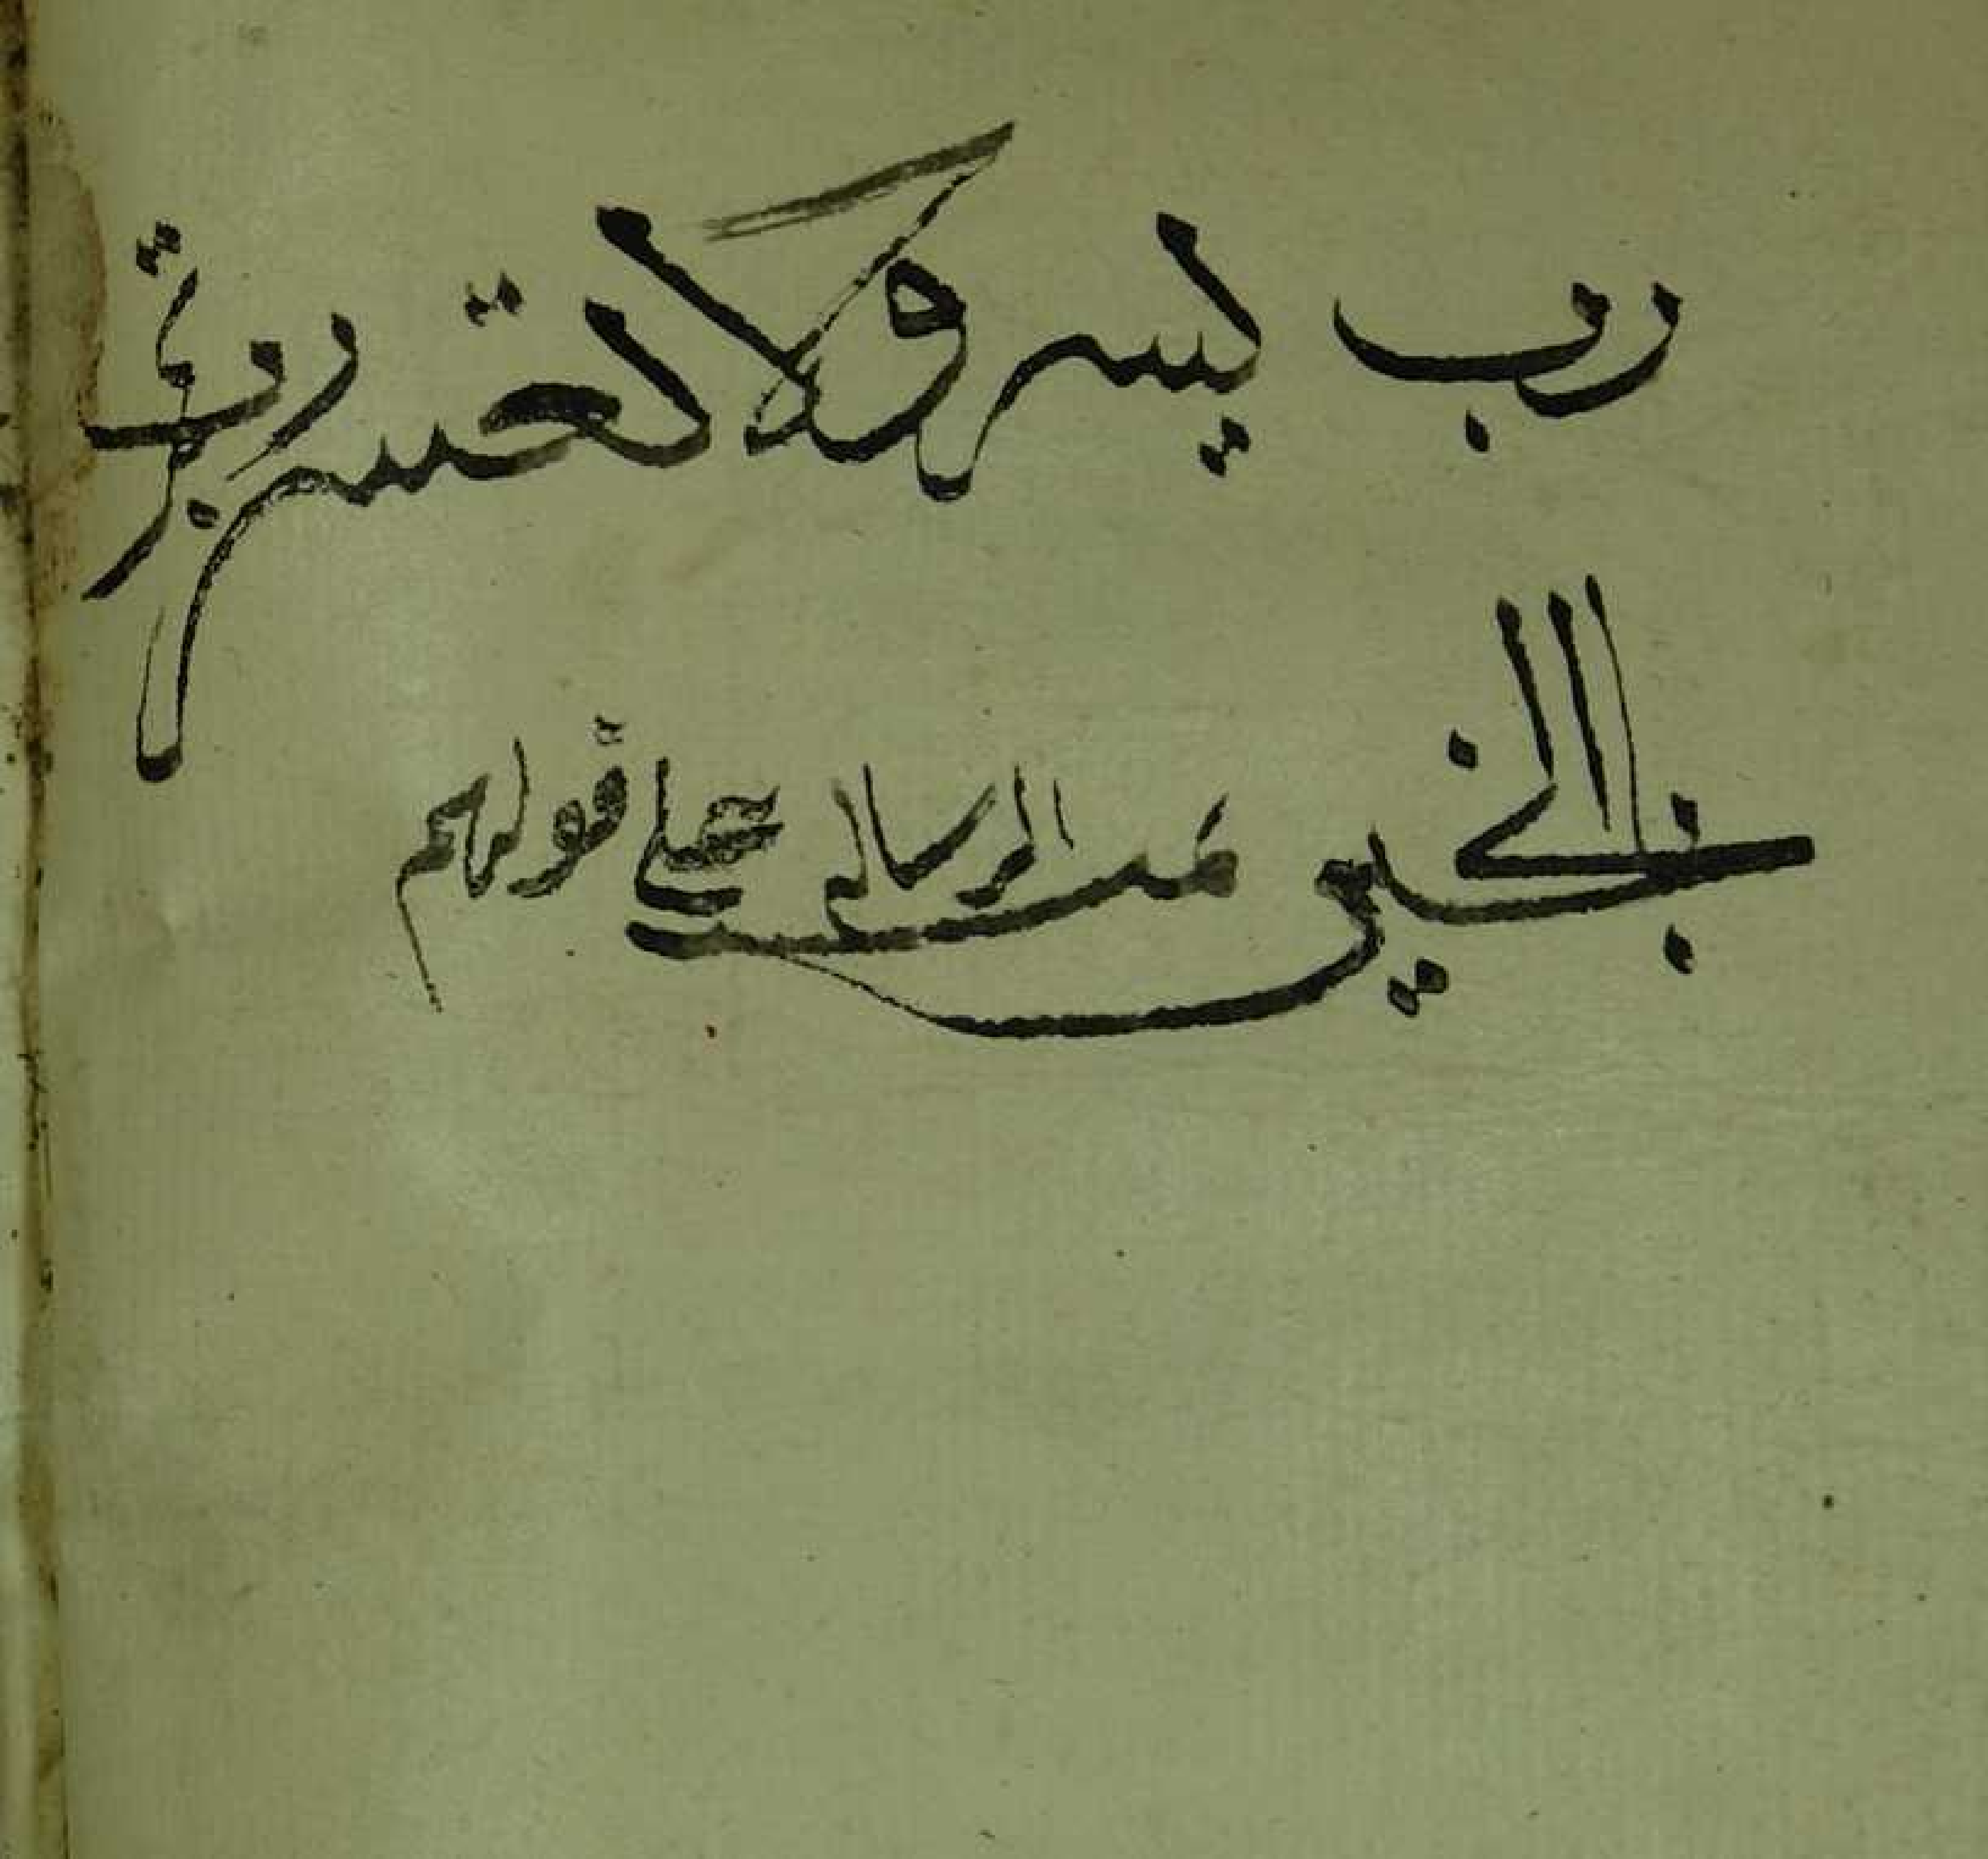 رب يسر ولا تعسر رب تمم
بالخير تمت الرسالة على قولهم